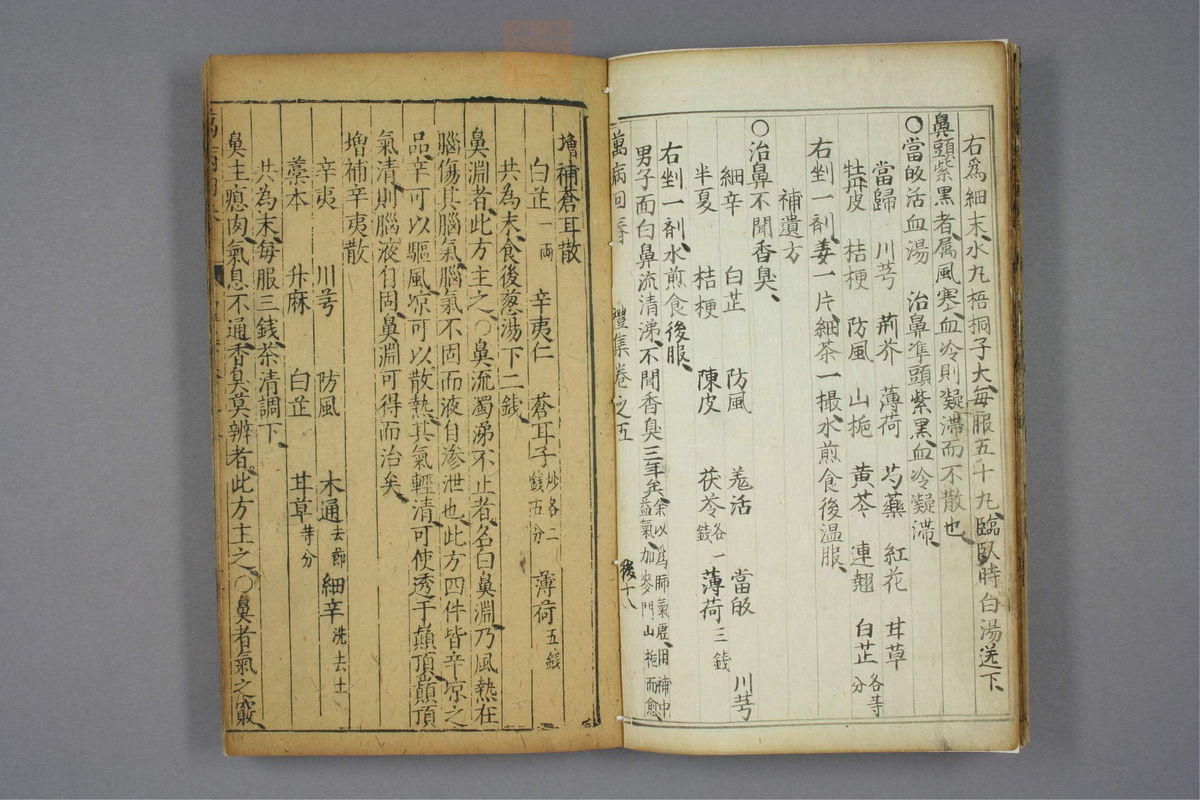 右爲細末水丸梧桐子大毎服五十丸臨臥時白湯送下
鼻頭紫黑者属風塞血冷則凝滞而不散也
〇當皈活血湯 治鼻準頭紫黑血冷凝滞
當歸 川芎 荊芥 薄荷 芍藥 紅花 甘草
牡丹皮 桔梗 防風 山梔 黄芩 連翹 白芷各等分
右剉一剤姜一片細茶一撮水煎食後温服
補遺方
〇治鼻不聞香臭
細辛 白芷 防風 羌活 當皈 川芎
半夏 桔梗 陳皮 茯苓各一錢 薄荷三錢
右剉一剤水煎食後服
男子面白鼻流清涕不聞香臭三年矣余以爲肺氣虚用補中益氣加麥門山梔而愈
萬病回春 豊集卷之五 後十八
増補蒼耳散
白芷一兩 辛夷仁 蒼耳子炒各二錢五分 薄荷五錢
共為末食後葱湯下二錢
鼻淵者此方主之〇鼻流濁涕不止者名曰鼻淵乃風熱在
腦傷其腦氣腦氣不固而液自滲泄也此方四件皆辛凉之
品辛可以驅風凉可以散熱其氣輕清可使透于巔頂巔頂
氣清則腦液自固鼻淵可得而治矣
増補辛夷散
辛夷 川芎 防風 木通去節 細辛洗去土
藁本 升麻 白芷 甘草等分
共為末毎服三錢茶清調下
鼻主瘜肉氣息不通香臭莫辨者此方主之〇鼻者氣之竅